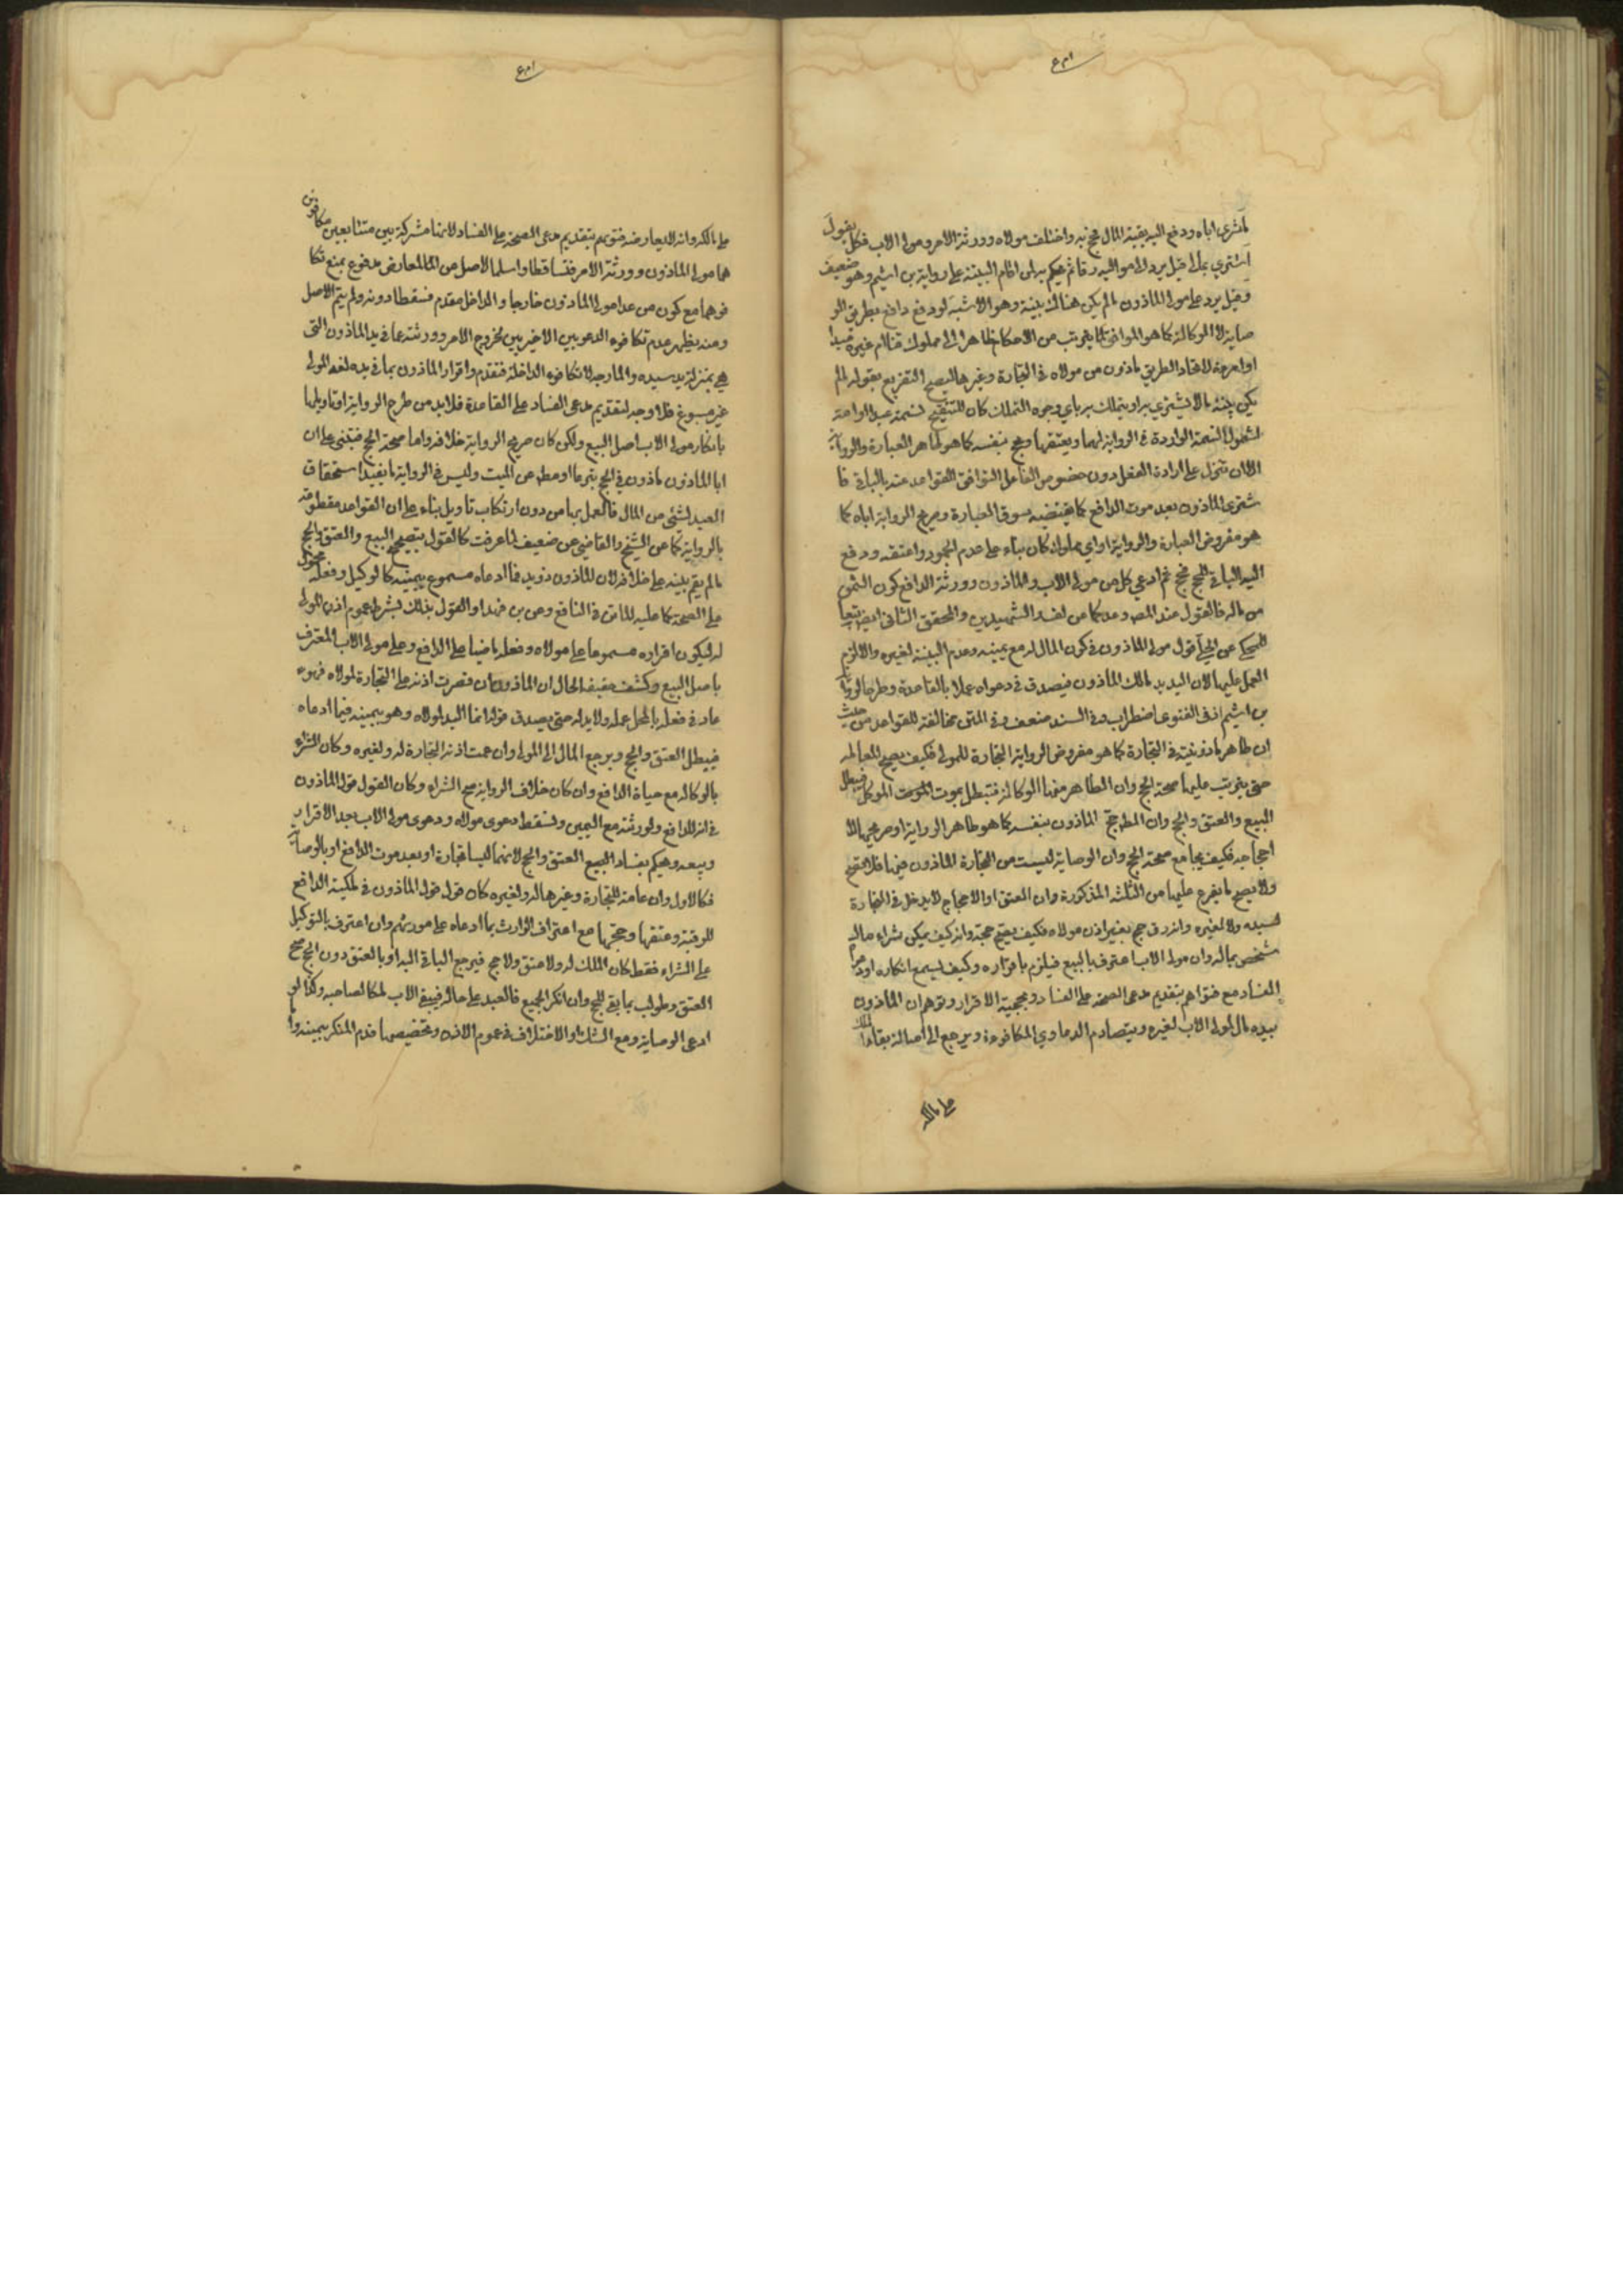 فاشترى اباه ودفع اليه بقية المال فحج به واختلف مولاه وورثة الامر ومولى الاب فكل يقول
اشتري بمالي قيل يرد الى مواليه رقا ثم يحكم به لمن اقام البينة على رواية بن اشيم وهو ضعيف
وقيل يرد على مولى الماذون ما لم يكن هناك بينة وهو الاشبه لو دفع دافع بطريق الو
صاية لا الوكالة كما هو الموافق لما يترتب من الاحكام ظاهرا الى مملوك قنا ام غيره
او لم يحرز لاتحاد الطريق ماذون من مولاه في التجارة وغيرها ليصح التفريع بقوله ما لم
يكن بينة مالا ليشتري به او يتملك به باي وجوه التملك كان للتنقيح نسمة عبدا او امة
لشمول النسمة الواردة في الرواية لهما ويعتقها ويحج بنفسه كما هو ظاهر العبارة والرواية
الا ان تنزل على ارادة الفعل دون خصوص الفاعل لتوافق القواعد عنه بالباقي فا
شترى الماذون بعد موت الدافع كما يقتضيه سوق العبارة وصريح الرواية اباه كما
هو مفروض العبارة والرواية او اي مملوك كان بناء على عدم الجمود واعتقه ودفع
اليه الباقي للحج فحج ثم ادعى كل من مولى الاب والماذون وورثة الدافع كون الثمن
من ماله فالقول عند المصـ وعده كما من الفـ والشهيدين والمحقق الثاني
المحكي عن الحلي قول مولى الماذون في كون المال له مع يمينه وعدم البينة لغيره والا لزم
العمل عليها لان اليد يد مالك الماذون فيصدق في دعواه عملا بالقاعدة وطرحا لرواية
بن اشيم اذ في الفتوى بها اضطراب وفي السند ضعف وفي المتن مخالفة للقواعد من حيث
ان ظاهر ماذونيته في التجارة كما هو مفروض الرواية التجارة للمولى فكيف يصح للعبد المعاملة
حتى يترتب عليها صحة الحج وان الظاهر منها الوكالة فتبطل بموت الموكل فيبطل
البيع والعتق والحج وان المطـ حج الماذون بنفسه كما هو ظاهر الرواية او صريحها لا
احجاجه فكيف يجامع صحة الحج وان الوصاية ليست من التجارة الماذون فيها فلا تصح
ولا يصح ما يفرع عليها من الثلثة المذكورة وان العتق او الاحجاج لا يدخل في التجارة
لسيده ولا لغيره وانه قد حج بغير اذن مولاه فكيف يصح حجه وانه كيف يمكن شراء مال
شخص بماله وان مولى الاب اعترف بالبيع فيلزم باقراره وكيف يسمع انكاره او دعواه
الفساد مع فتواهم بتقديم مدعي الصحة على الفساد وبحجية الاقرار وتوهم ان الماذون
بيده مال لمولى الاب لغيره ويتصادم الدعاوي المتكافوءة ويرجع الى اصالة بقاء الملك
على مالكه
على مالكه وانه لا يعارضه فتويهم بتقديم مدعي الصحة على الفساد لانها مشتركة بين متنايعين متكافوئين
هما مولى الماذون وورثة الامر فتساقطا واسلما الاصل من المعارض مدفوع بمنع تكا
فوهما مع كون من عدا مولى الماذون خارجا والداخل مقدم فسقطا دونه ولم يتم الاصل
ومنه يظهر عدم تكافوء الدعويين الاخيرين لخروج الامر وورثته عما في يد الماذون التي
هي بمنزلة يد سيده والخارجة لا تكافوء الداخلة فتقدم واقرار الماذون بما في يده لغير المولى
غير مسموع فلا وجه لتقديم مدعي الفساد على القاعدة فلا بد من طرح الرواية او تاويلها
بانكار مولى الاب اصل البيع ولكن كان صريح الرواية خلافه واما صحة الحج فيبتني على ان
ابا الماذون ماذون في الحج تبرعا او مطـ عن الميت وليس في الرواية ما يفيد استحقاق
العبد لشئ من المال فالعمل بها من دون ارتكاب تاويل بناء على ان القواعد مقطوعة
بالرواية كما عن الشيخ والقاضي عن ضعيف لما عرفت كالقول بتصحيح البيع والعتق والحج
ما لم يقم بينة على خلافه لان للماذون ذو يد فما ادعاه مسموع بيمينه كالوكيل وفعله محمول
على الصحة كما عليه المـاتن في النافع وعن بن فهد او القول بذلك بشرط عموم اذن المولى
له ليكون اقراره مسموعا على مولاه وفعله ماضيا على الدافع وعلى مولى الاب المعترف
باصل البيع وكشف حقيقة الحال ان الماذون ان قصرت اذنه على التجارة لمولاه فهو
عاد في فعله بالمحل عمله ولا يد له حتى يصدق قوله انما اليد لمولاه وهو بيمينه فيما ادعاه
فيبطل العتق والحج ويرجع المال الى المولى وان عمت اذنه التجارة له ولغيره وكان الشراء
بالوكالة مع حياة الدافع وان كان خلاف الرواية صح الشراء وكان القول قول الماذون
في انه للدافع ولورثته مع اليمين وتسقط دعوى مولاه ودعوى مولى الاب بعد الاقرار
وبيعه ويحكم بفساد البيع العتق والحج لانهما ليسا تجارة او بعد موت الدافع او بالوصاية
فكالاول وان عامة للتجارة وغيرها له ولغيره كان قول قول الماذون في ملكية الدافع
للرقبة وعتقها وحجها مع اعتراف الوارث بما ادعاه على مورثهم وان اعترف بالتوكيل
على الشراء فقط كان الملك له ولا عتق ولا حج فيرجع الباقي اليه او بالعتق دون الحج صح
العتق وطولب بما بقي للحج وان انكر الجميع فالعبد على حاله فيبقى الاب ملكا لصاحبه وكذا لو
ادعى الوصاية ومع الشك او الاختلاف في عموم الاذن وتخصيصها قدم المنكر بيمينه